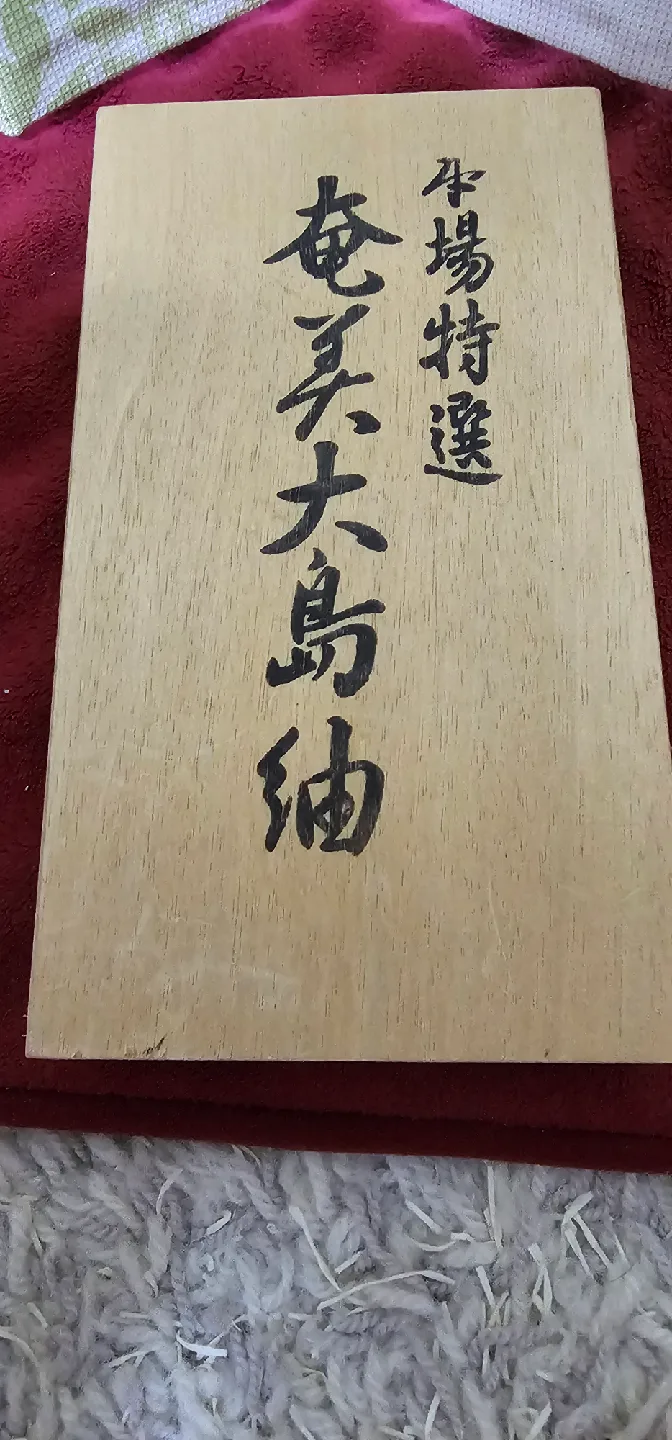 本場特選
奄美大島紬